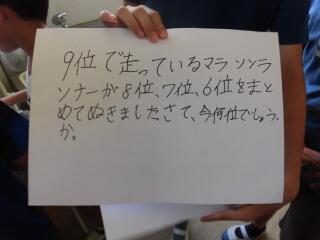 9位で走っているマラソンラ
ンナーが8位、7位、6位をまと
めてぬきました。さて、今何位でしょう
か。